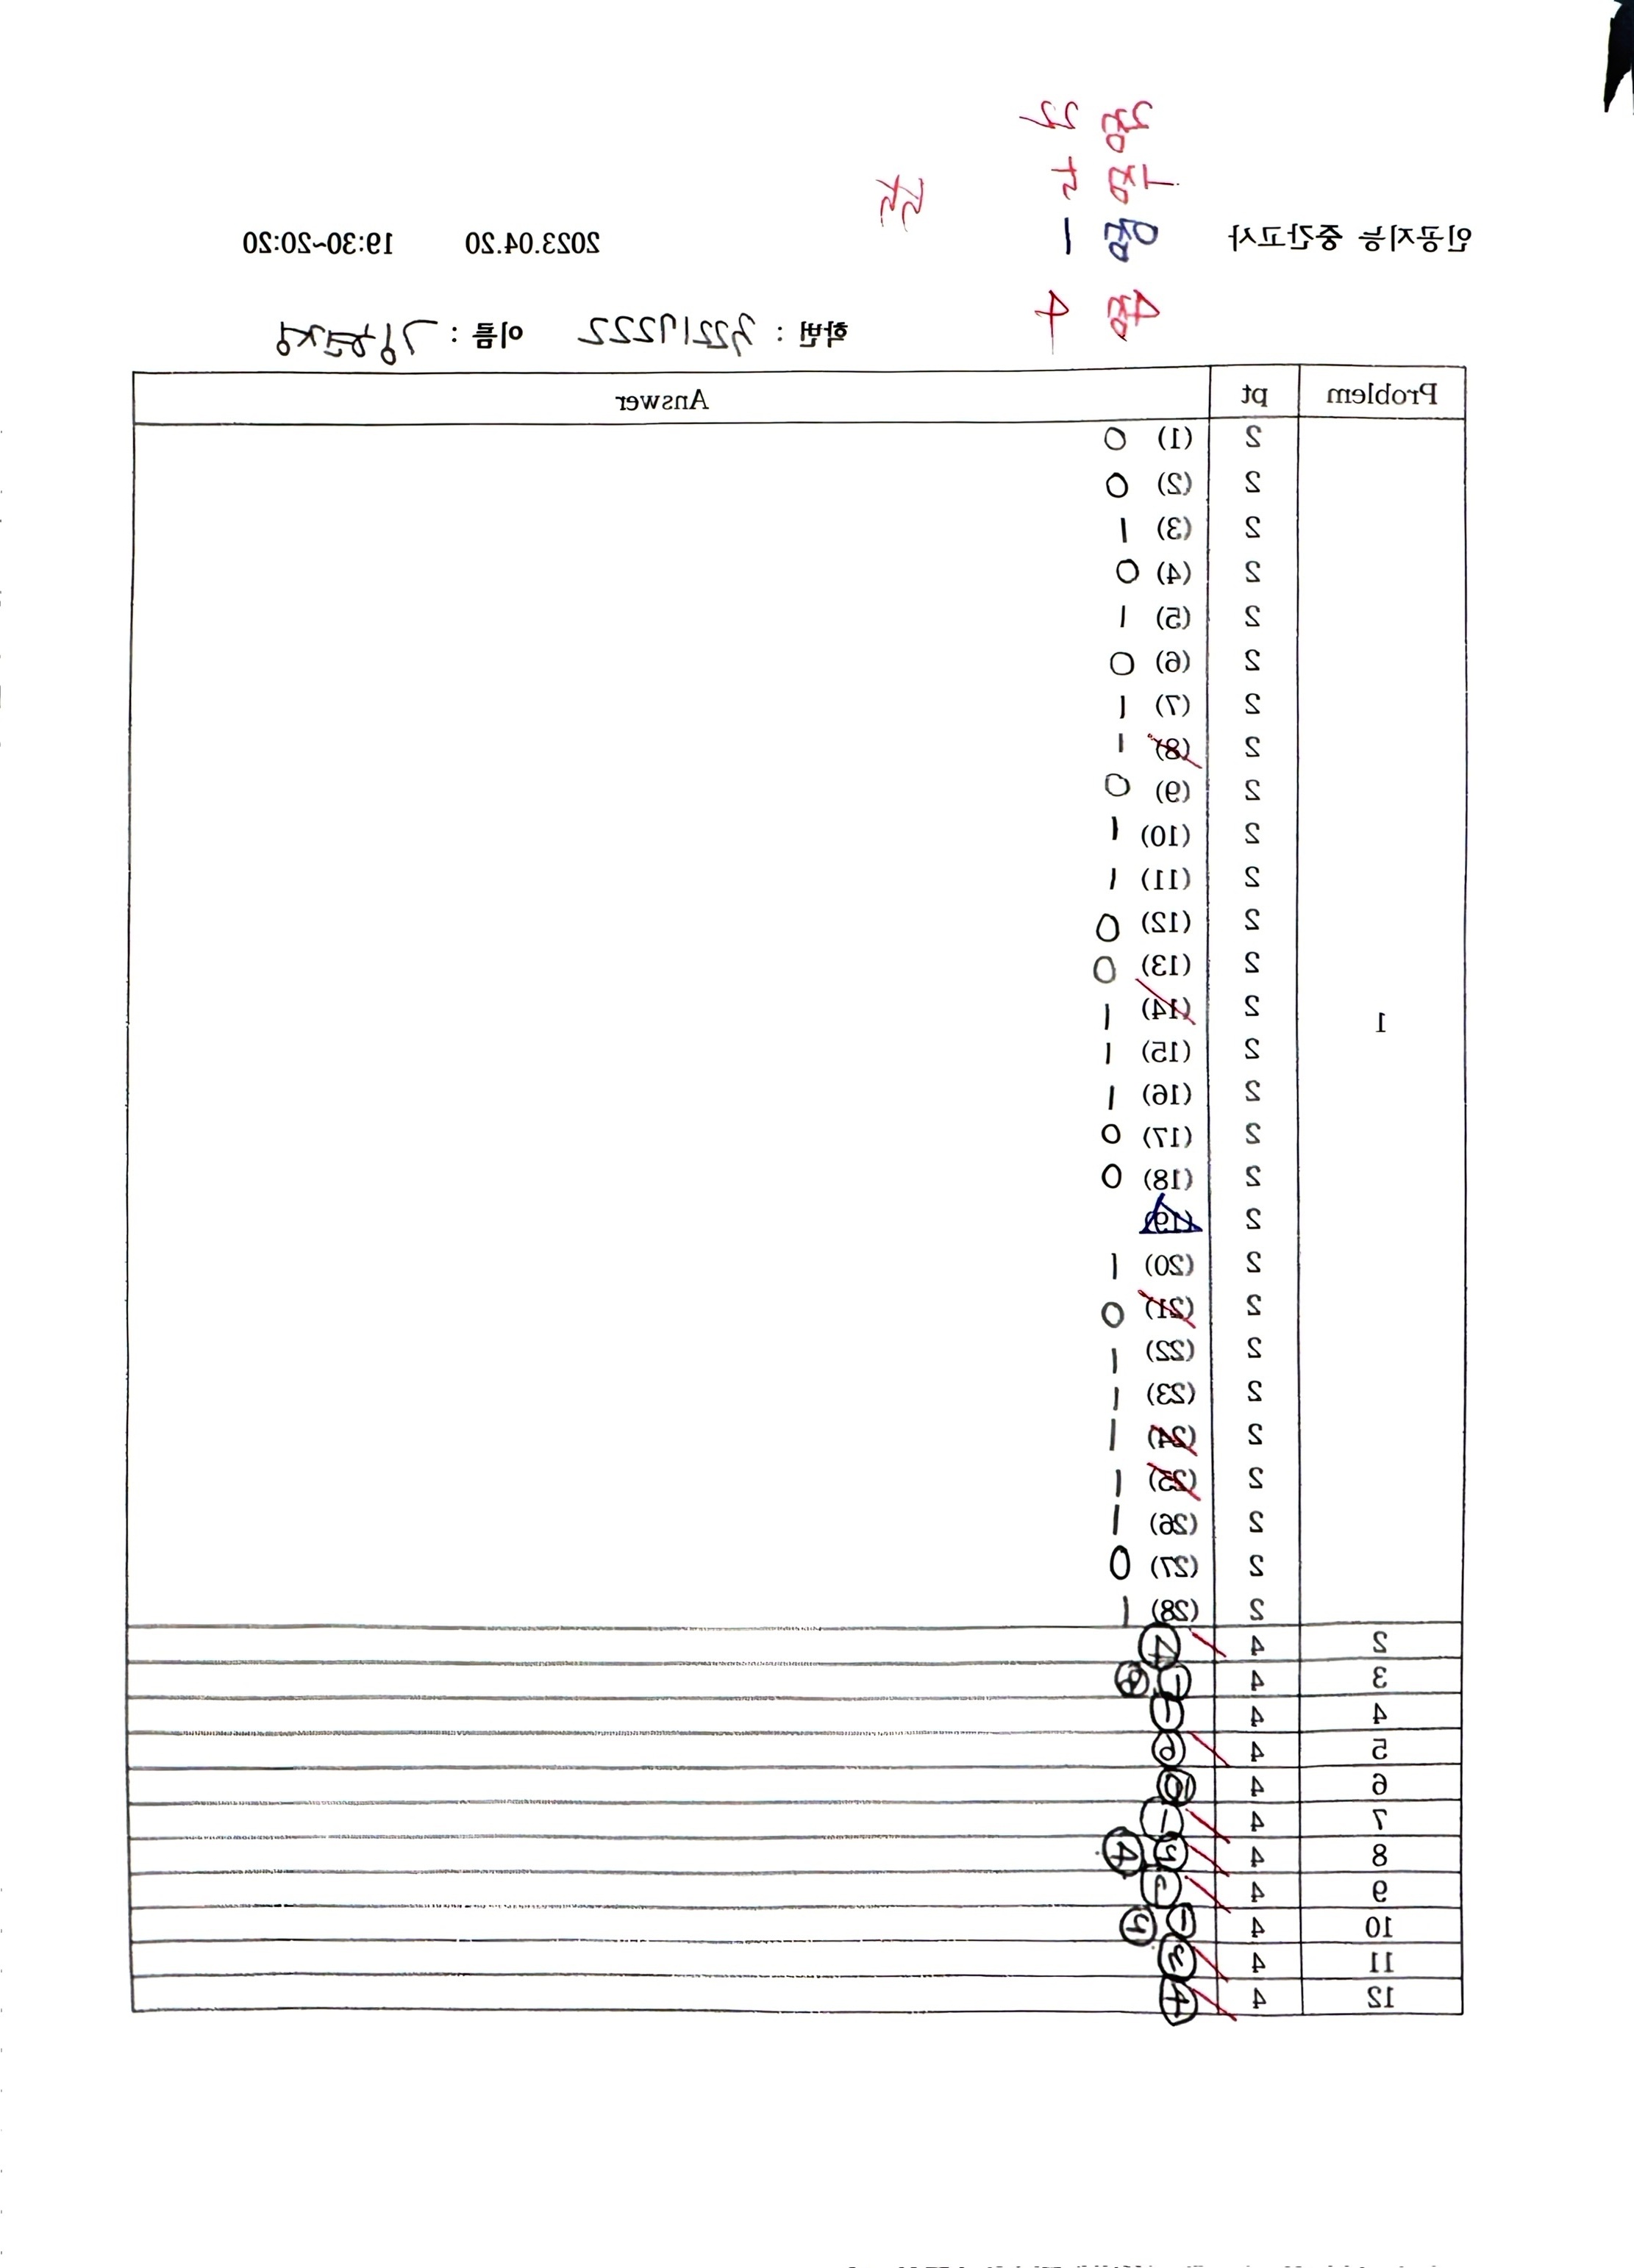 인공지능 중간고사 2023.04.20 19:30~20:20
4점 4
학번 : 32217222 이름 :
Problem pt Answer
1
2 (1) 0
2 (2) 0
2 (3) 1
2 (4) 0
2 (5) 1
2 (6) 0
2 (7) 1
2 (8) 1
2 (9) 0
2 (10) 1
2 (11) 1
2 (12) 0
2 (13) 0
2 (14) 1
2 (15) 1
2 (16) 1
2 (17) 0
2 (18) 0
2 (19)
2 (20) 1
2 (21) 0
2 (22) 1
2 (23) 1
2 (24) 1
2 (25) 1
2 (26) 1
2 (27) 0
2 (28) 1
2 4 ④
3 4 ①
4 4 ①
5 4 ⑥
6 4
7 4 ①
8 4 ③ ④
9 4 ②
10 4 ① ③
11 4 ③
12 4 ④